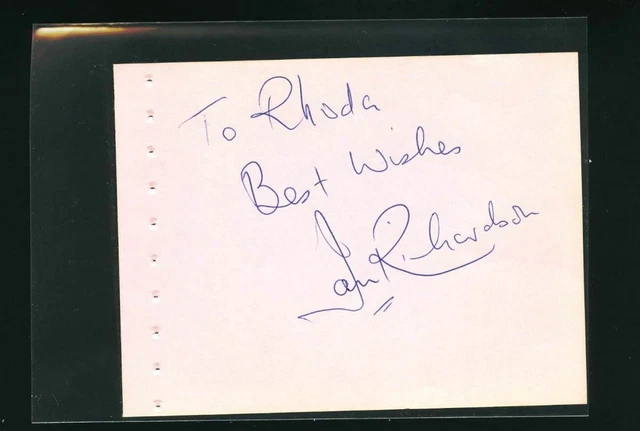 To Rhoda
Best Wishes
Ian Richardson